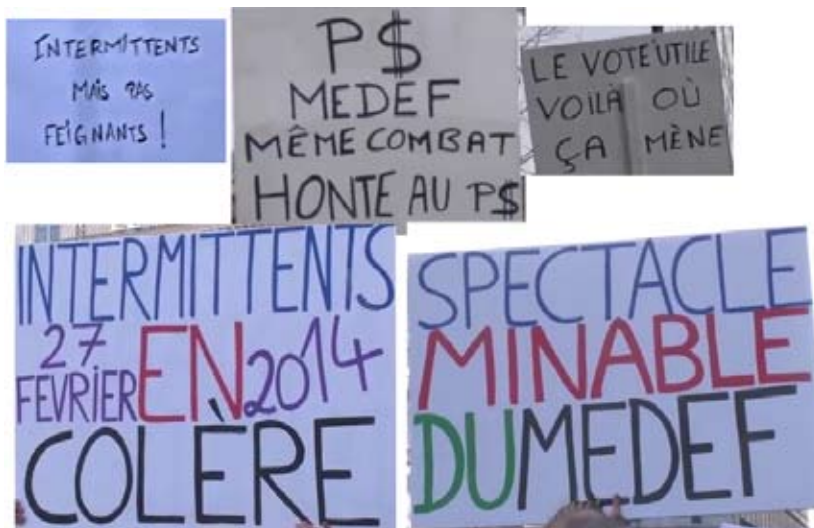 INTERMITTENTS
MAIS PAS
FEIGNANTS !
P$
MEDEF
MÊME COMBAT
HONTE AU P$
LE VOTE UTILE
VOILÀ OÙ
ÇA MÈNE
INTERMITTENTS
27
FEVRIER EN 2014
COLÈRE
SPECTACLE
MINABLE
DU MEDEF